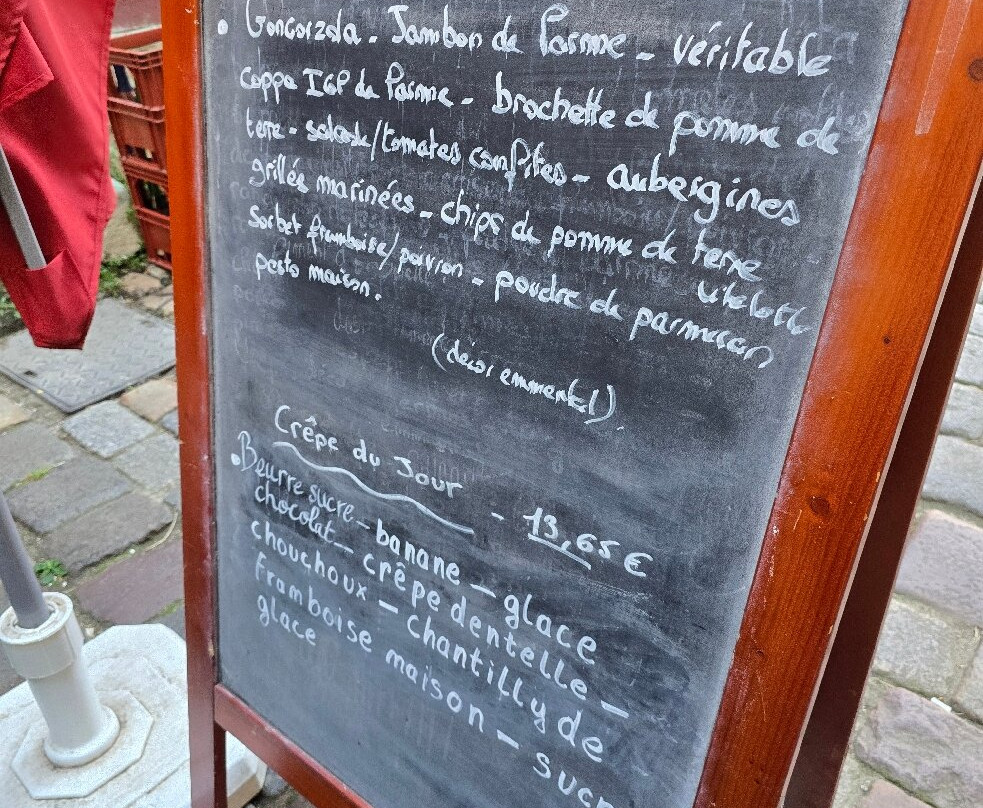 • Gongorzola - Jambon de Parme - véritable
coppa IGP de Parme - brochette de pomme de
terre - salade/tomates confites - aubergines
grillés marinées - chips de pomme de terre
vitelotte
sorbet framboise/poivron - poudre de parmesan
pesto maison.
(décor emmental).
Crêpe du Jour - 13,65 €
• Beurre sucre - banane - glace
chocolat - crêpe dentelle -
chouchoux - chantilly de
framboise maison - sucr
glace